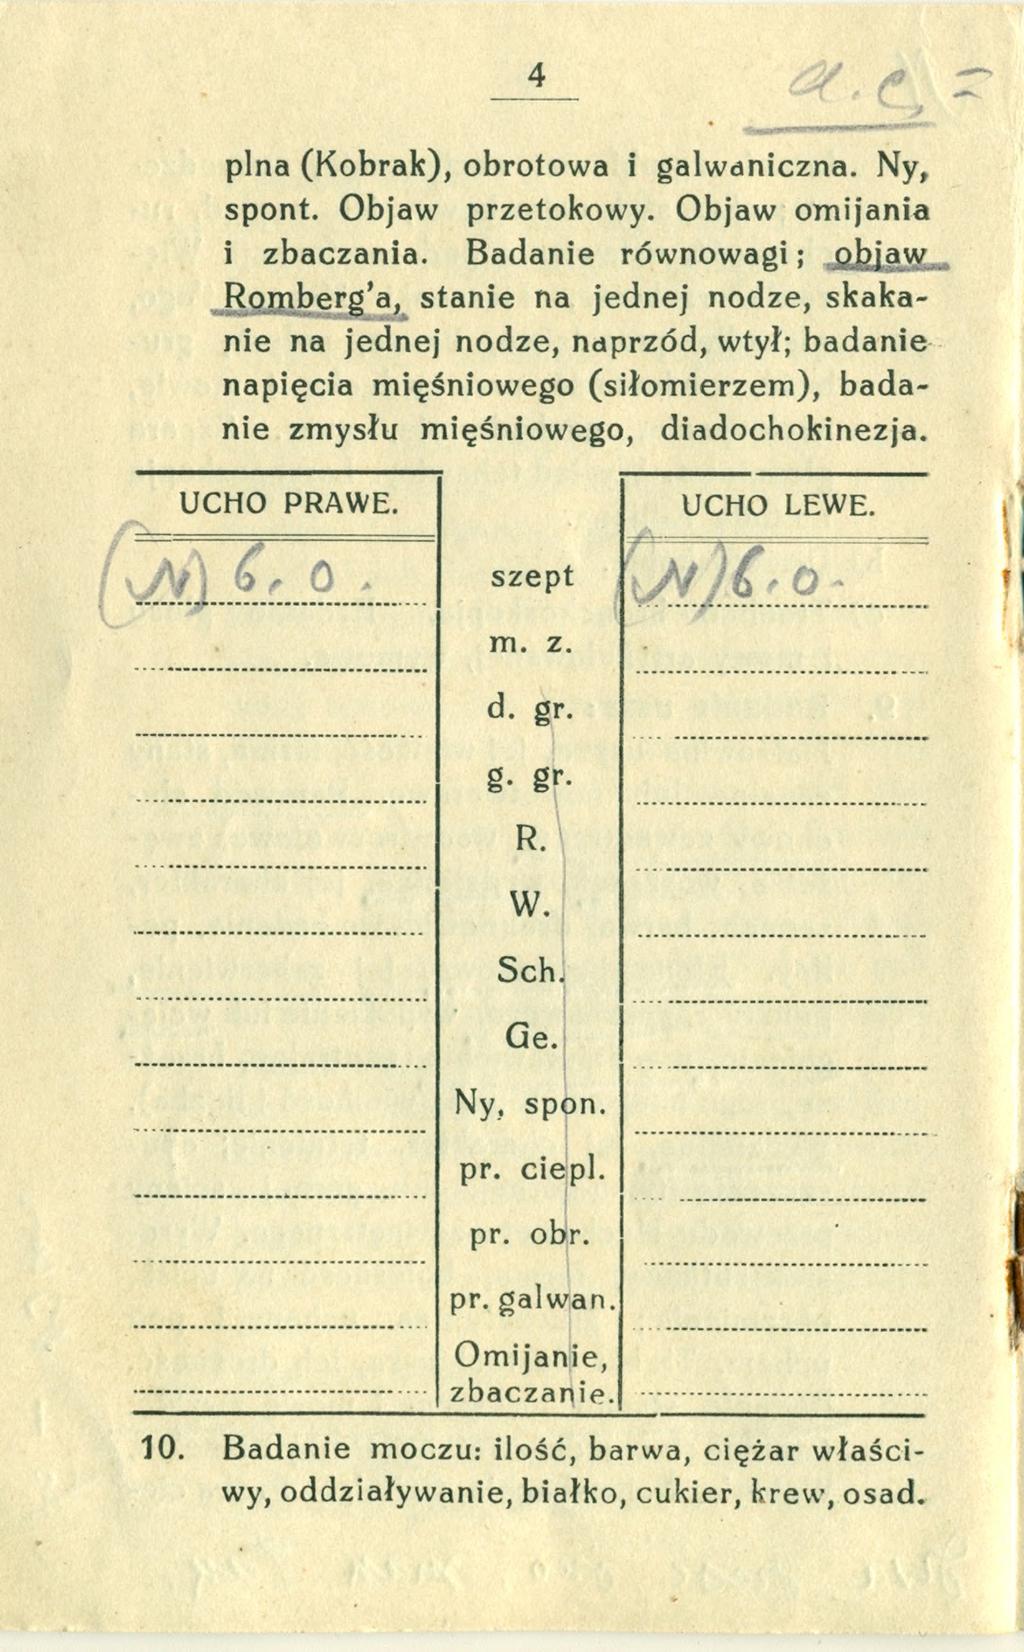 4
a. c. =
plna (Kobrak), obrotowa i galwaniczna. Ny,
spont. Objaw przetokowy. Objaw omijania
i zbaczania. Badanie równowagi; objaw
Romberg'a, stanie na jednej nodze, skaka-
nie na jednej nodze, naprzód, wtył; badanie
napięcia mięśniowego (siłomierzem), bada-
nie zmysłu mięśniowego, diadochokinezja.
UCHO PRAWE. UCHO LEWE.
(N) 6. 0. szept (N) 6. 0.
m. z.
d. gr.
g. gr.
R.
W.
Sch.
Ge.
Ny, spon.
pr. ciepl.
pr. obr.
pr. galwan.
Omijanie,
zbaczanie.
10. Badanie moczu: ilość, barwa, ciężar właści-
wy, oddziaływanie, białko, cukier, krew, osad.